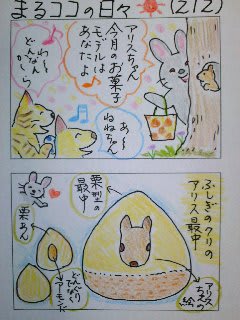 まるココの日々 (212)
アリスちゃん
今月のお菓子
モデルは
あなたよ
わ〜
どんなん
かしら
あ〜
ねねちゃん
ふしぎのクリの
アリス最中
栗型の
最中
アリス
ちゃんの
絵
栗あん
どんぐり
アーモンド